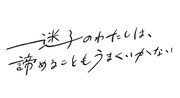 迷子のわたしは、
諦めることもうまくいかない